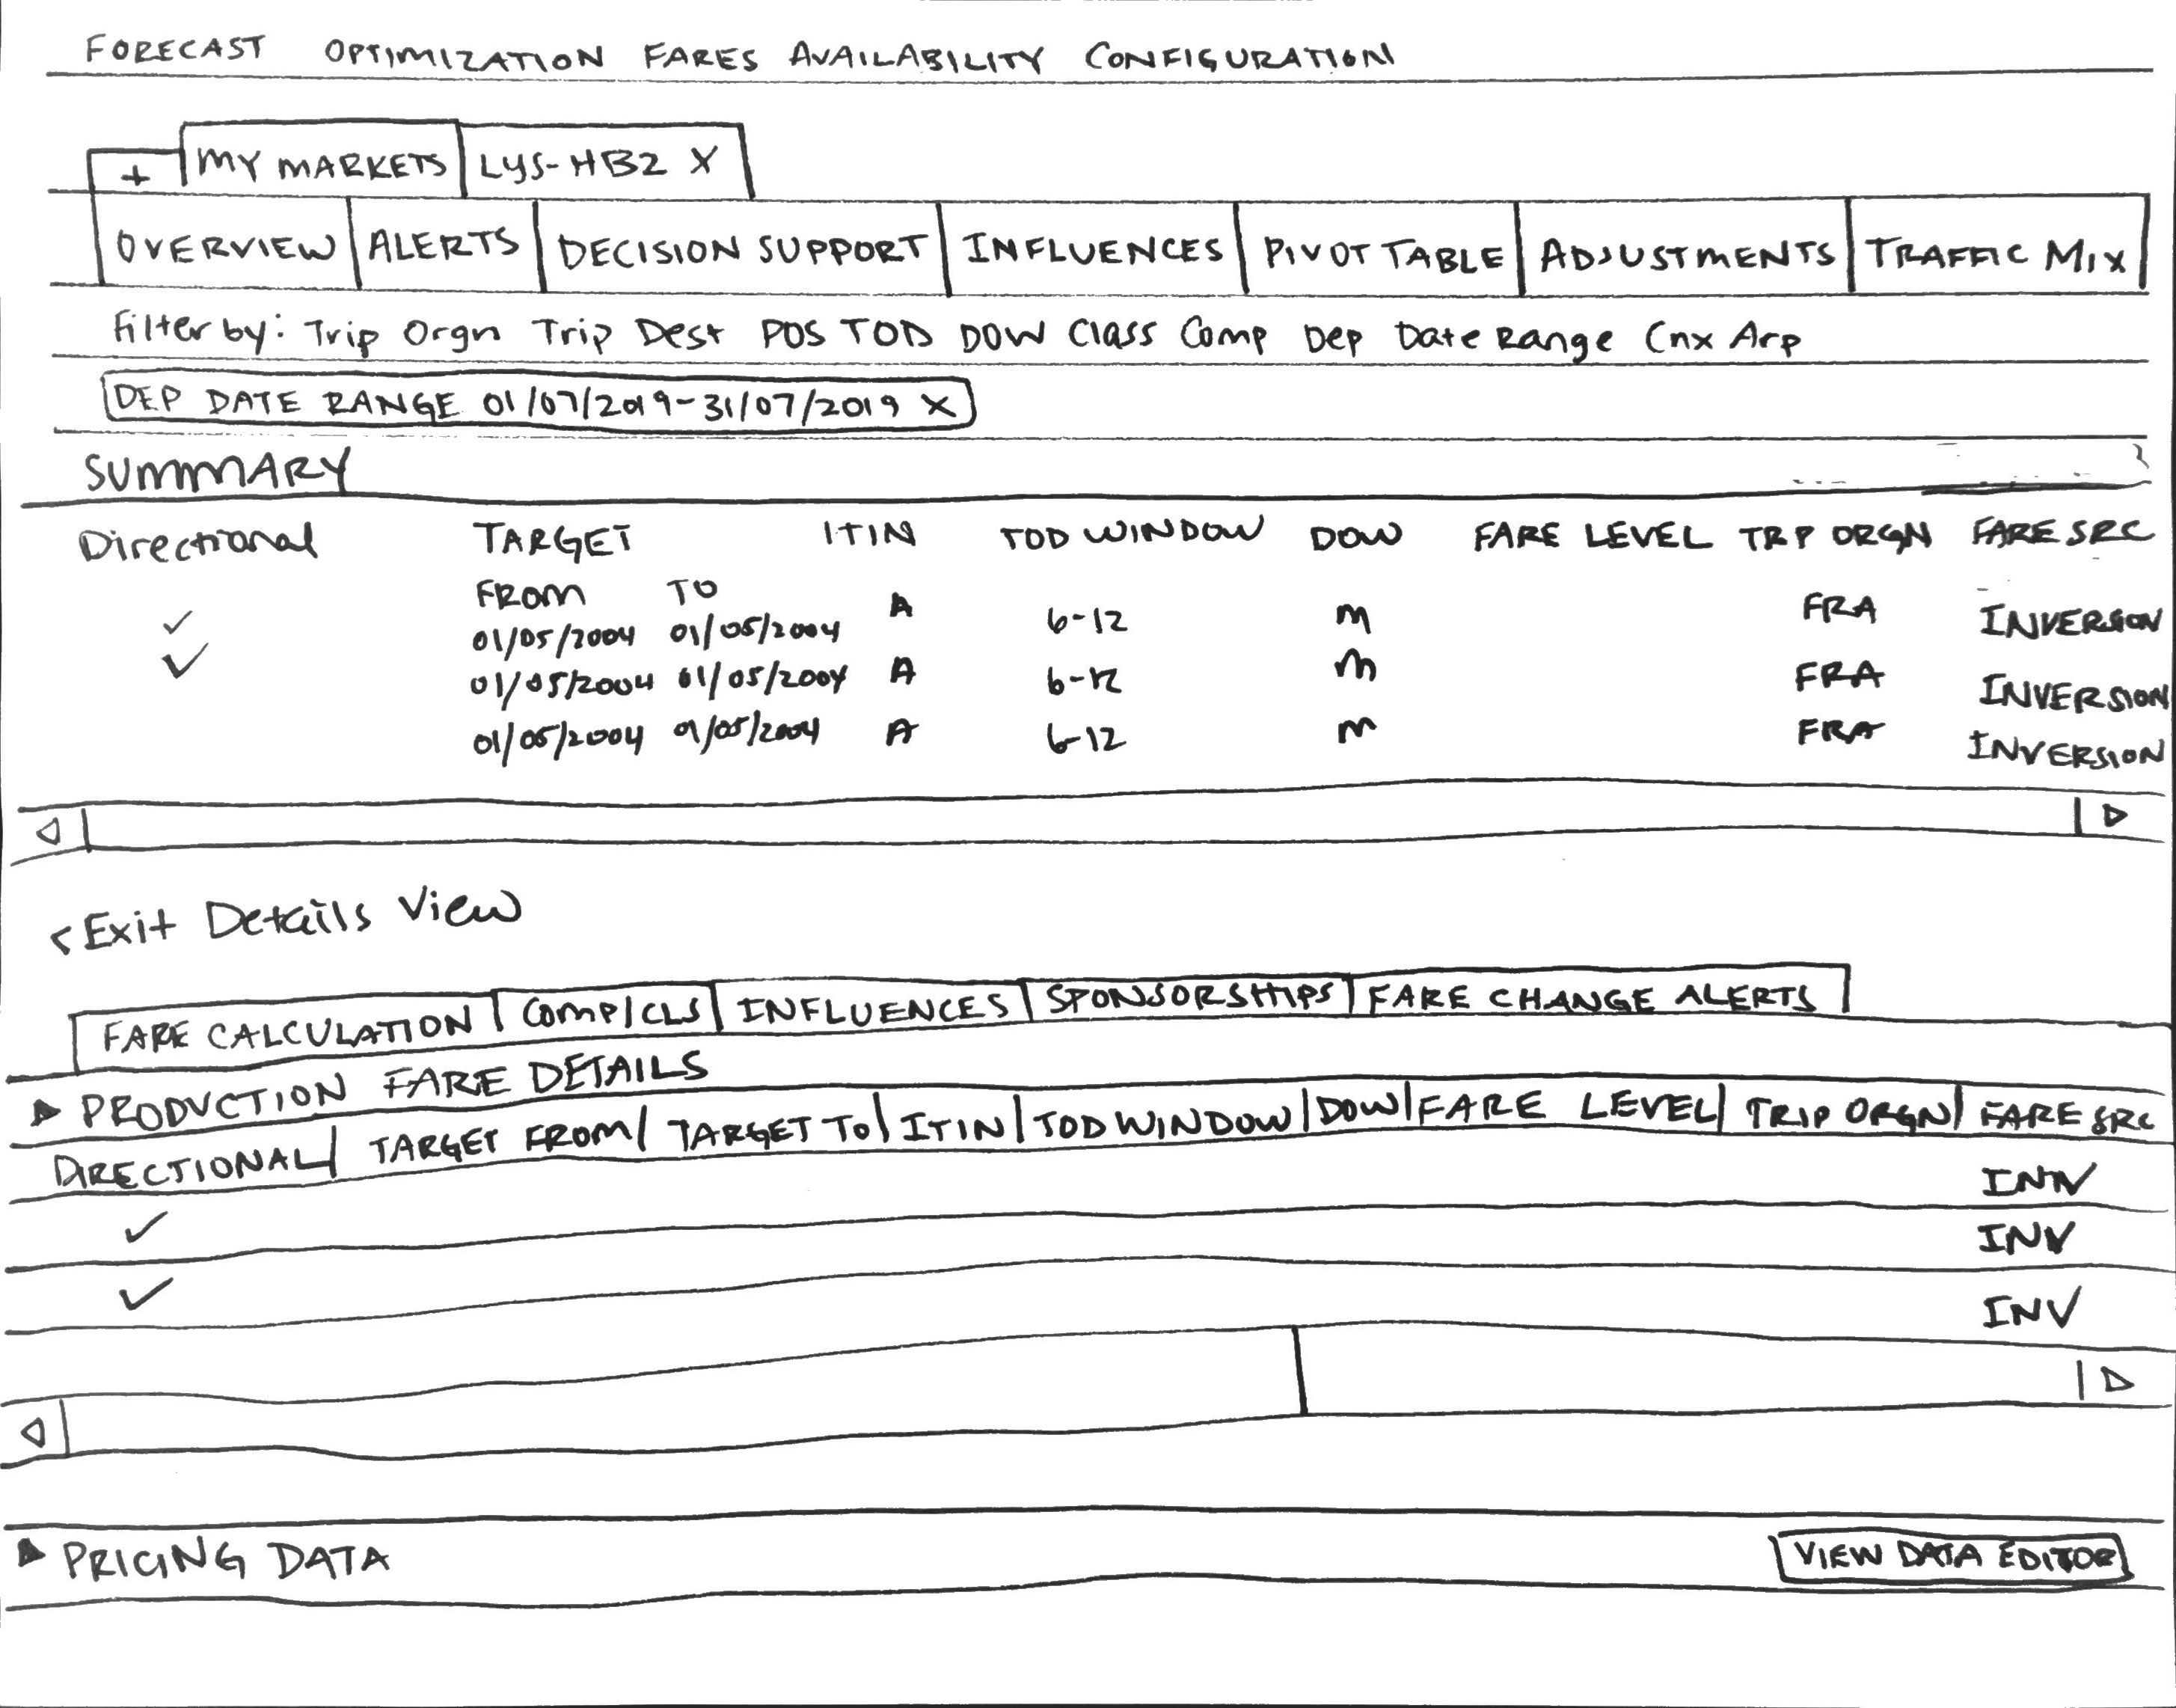 FORECAST OPTIMIZATION FARES AVAILABILITY CONFIGURATION
+ MY MARKETS LYS-HB2 X
OVERVIEW ALERTS DECISION SUPPORT INFLUENCES PIVOT TABLE ADJUSTMENTS TRAFFIC MIX
Filter by: Trip Orgn Trip Dest POS TOD DOW Class Comp Dep Date Range Cnx Arp
DEP DATE RANGE 01/07/2019-31/07/2019 X
SUMMARY
Directional TARGET ITIN TOD WINDOW DOW FARE LEVEL TRP ORGN FARE SRC
FROM TO
✓ 01/05/2004 01/05/2004 A 6-12 M FRA INVERSION
✓ 01/05/2004 01/05/2004 A 6-12 M FRA INVERSION
01/05/2004 01/05/2004 A 6-12 M FRA INVERSION
< Exit Details View
FARE CALCULATION COMP/CLS INFLUENCES SPONSORSHIPS FARE CHANGE ALERTS
▶ PRODUCTION FARE DETAILS
DIRECTIONAL | TARGET FROM | TARGET TO | ITIN | TOD WINDOW | DOW | FARE LEVEL | TRIP ORGN | FARE SRC
✓ INV
✓ INV
INV
▶ PRICING DATA VIEW DATA EDITOR